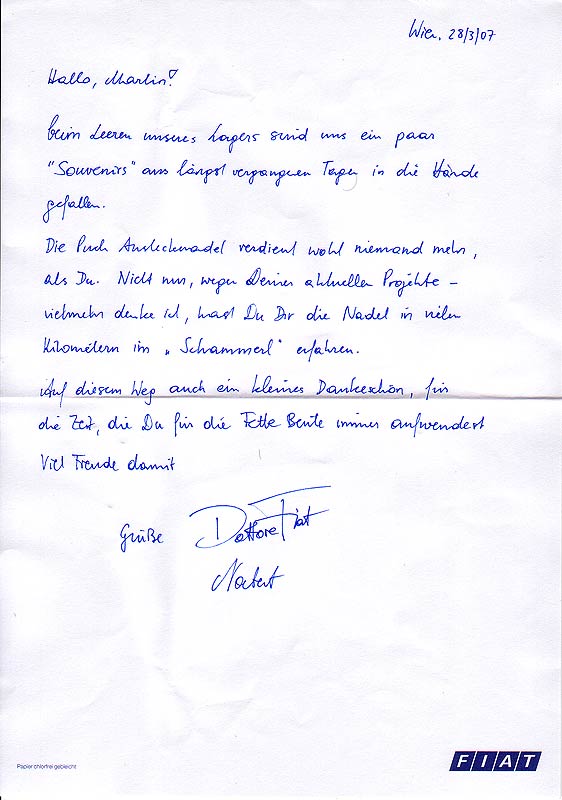 Wien, 28/3/07
Hallo, Martin!
beim Leeren unseres Lagers sind uns ein paar
"Souvenirs" aus längst vergangenen Tagen in die Hände
gefallen.
Die Puch Anstecknadel verdient wohl niemand mehr,
als Du. Nicht nur, wegen Deiner aktuellen Projekte –
vielmehr denke ich, hast Du Dir die Nadel in vielen
Kilometern im „Schammerl" erfahren.
Auf diesem Weg auch ein kleines Dankeschön, für
die Zeit, die Du für die Fette Beute immer aufwendest
Viel Freude damit
Grüße Dottore Fiat
Norbert
Papier chlorfrei gebleicht
FIAT